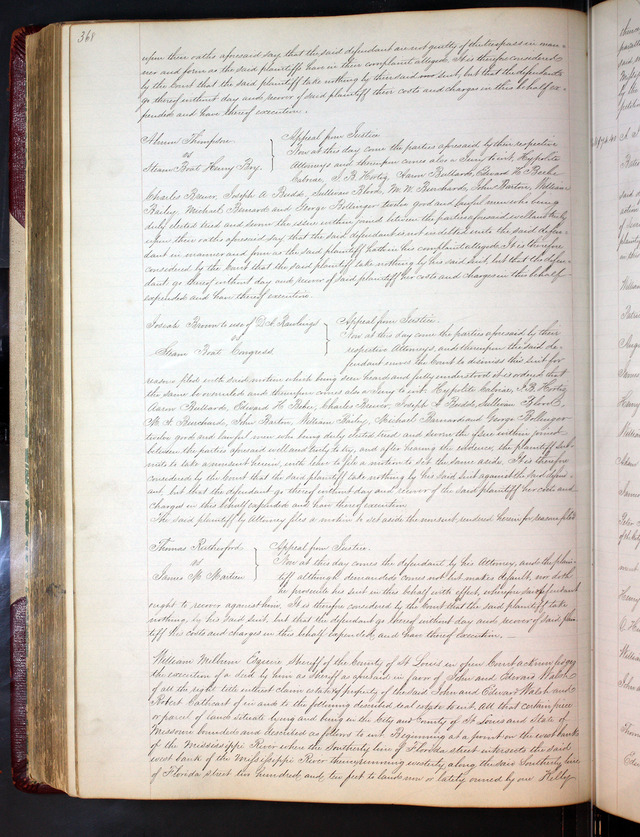 368
upon their oaths aforesaid say that the said defendant are not guilty of the trespass in man-
ner and form as the said plaintiffs have in their complaint alleged. It is therefore considered
by the Court that the said plaintiffs take nothing by their said suit, but that the defendants
go thereof without day and recover of said plaintiff their costs and charges in this behalf ex-
pended and have thereof execution.
Thompson
vs
Steam Boat Henry Bry.
Appeal from Justice
Now at this day come the parties aforesaid by their respective
Attorneys and thereupon comes also a Jury to wit, Hypolite
J. B. Hertig, Aaron Bullard, Edward H. Beebe
Charles Bauer, Joseph A. Budd, Sullivan Blood, M. W. Burchard, John Barton, William
Bailey, Michael Barnard and George Bollinger twelve good and lawful men who being
duly elected tried and sworn the issue within joined between the parties aforesaid well and truly
upon their oaths aforesaid say that the said defendant is not indebted unto the said defen-
dant in manner and form as the said plaintiff hath in his complaint alleged. It is therefore
considered by the Court that the said plaintiff take nothing by his said suit, but that the defen-
dant go thereof without day and recover of said plaintiff her costs and charges in this behalf
expended and have thereof execution.
Josiah Brown to use of D. A. Rawlings
vs
Steam Boat Congress
Appeal from Justice.
Now at this day come the parties aforesaid by their
respective Attorneys, and thereupon the said de-
fendant moves the Court to dismiss this suit for
reasons filed with said motion which being seen heard and fully understood it is ordered that
the same be overruled and thereupon comes also a Jury to wit, Hypolite J. B. Hertig
Aaron Bullard, Edward H. Beebe, Charles Bauer, Joseph A. Budd, Sullivan Blood,
M. W. Burchard, John Barton, William Bailey, Michael Barnard and George Bollinger
twelve good and lawful men who being duly elected tried and sworn the issue within joined
between the parties aforesaid well and truly to try, and after hearing the evidence the plaintiff sub-
mits to take a nonsuit herein, with leave to file a motion to set the same aside. It is therefore
considered by the Court that the said plaintiff take nothing by his said suit against the said defend-
ant, but that the defendant go thereof without day and recover of the said plaintiff her costs and
charges in this behalf expended and have thereof execution
The said plaintiff by Attorney files a motion to set aside the nonsuit rendered herein for reasons filed
Thomas Rutherford
vs
James M. Martin
Appeal from Justice.
Now at this day comes the defendant by his Attorney, and the plain-
tiff although demanded comes not but makes default, nor doth
he prosecute his suit in this behalf with effect, wherefore said defendant
ought to recover against him. It is therefore considered by the Court that the said plaintiff take
nothing by his said suit, but that the defendant go thereof without day and recover of said plain-
tiff his costs and charges in this behalf expended, and have thereof execution. —
William Milburn Esquire Sheriff of the County of St Louis in open Court acknowledges
the execution of a deed by him as Sheriff as aforesaid in favor of John and Edward Walsh
of all the right title interest claim estate & property of the said John and Edward Walsh and
Robert Cathcart of in and to the following described real estate to wit. All that certain piece
or parcel of land situate lying and being in the City and County of St Louis and State of
Missouri bounded and described as follows to wit. Beginning at a point on the west bank
of the Mississippi River where the Southerly line of Florida street intersects the said
west bank of the Mississippi River thence running westerly along the said Southerly line
of Florida street two hundred and ten feet to lands now or lately owned by one Kelly